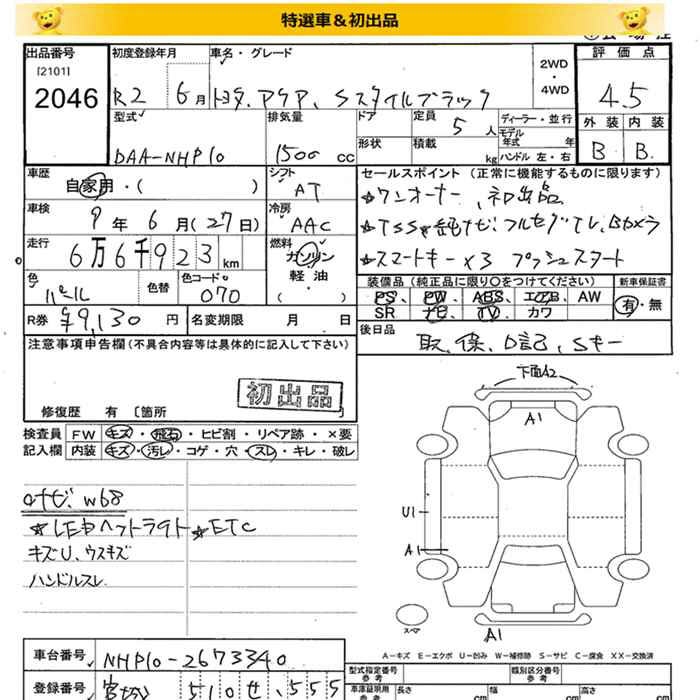 特選車&初出品
出品番号
[2101]
2046
初度登録年月
R2 6月
車名・グレード
トヨタ.アクア、Sスタイルブラック
2WD
・
4WD
評価点
4.5
外装 内装
B B.
型式
DAA-NHP10
排気量
1500 cc
ドア
定員
5人
ディーラー・並行
モデル年式 年
形状
積載
kg
ハンドル 左・右
車歴
自家用・( )
シフト
AT
車検
9年6月(27日)
冷房
AAC
走行
6万6千923km
燃料
ガソリン
軽油
・( )
色
パール
色替
色コードNo
070
R券
¥9,130円
名変期限 月 日
セールスポイント (正常に機能するものに限ります)
☆ワンオーナー、初出品
☆TSS☆純ナビ・フルセグTV、Bカメラ
☆スマートキー×3 プッシュスタート
装備品(純正品に限り○をつけてください)
PS、PW、ABS、エアB、AW
SR ナビ TV カワ
新車保証書
有・無
後日品
取、保、D記、Sキー
注意事項申告欄(不具合内容等は具体的に記入して下さい)
初出品
修復歴 有 〔箇所
検査員
記入欄
FW キズ・飛石・ヒビ割・リペア跡・×要
内装 キズ・汚レ・コゲ・穴・スレ・キレ・破レ
ロナビ、W68
☆LEDヘッドライト ☆ETC
キズU、ウスキズ
ハンドルスレ
下面A2
A1
U1
A1
スペア
A1
A-キズ E-エクボ U-凹み W-補修跡 S-サビ C-腐食 XX-交換済
車台番号
NHP10-2673340
型式指定番号
参考
類別区分番号
参考
登録番号
510せ・555
車庫証明用
参考
長さ cm
幅 cm
高さ cm